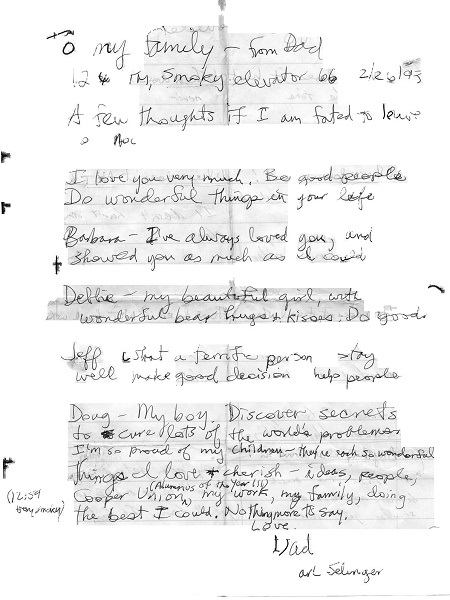 To my family - from Dad
in Smoky elevator 66 2/26/93
A few thoughts if I am fated to leave
now
I love you very much. Be good people
Do wonderful things in your life
Barbara - I've always loved you, and
showed you as much as I could
Debbie - my beautiful girl, with
wonderful bear hugs & kisses. Do good
Jeff what a terrific person stay
well make good decision help people
Doug - My boy. Discover secrets
to cure lots of the world's problems
I'm so proud of my children - they're each so wonderful
things I love & cherish - ideas, people,
(Alumnus of the Year !!)
Cooper Union, my work, my family, doing
(12:59
very smoky)
the best I could. Nothing more to say.
Love.
Dad
Art Selinger